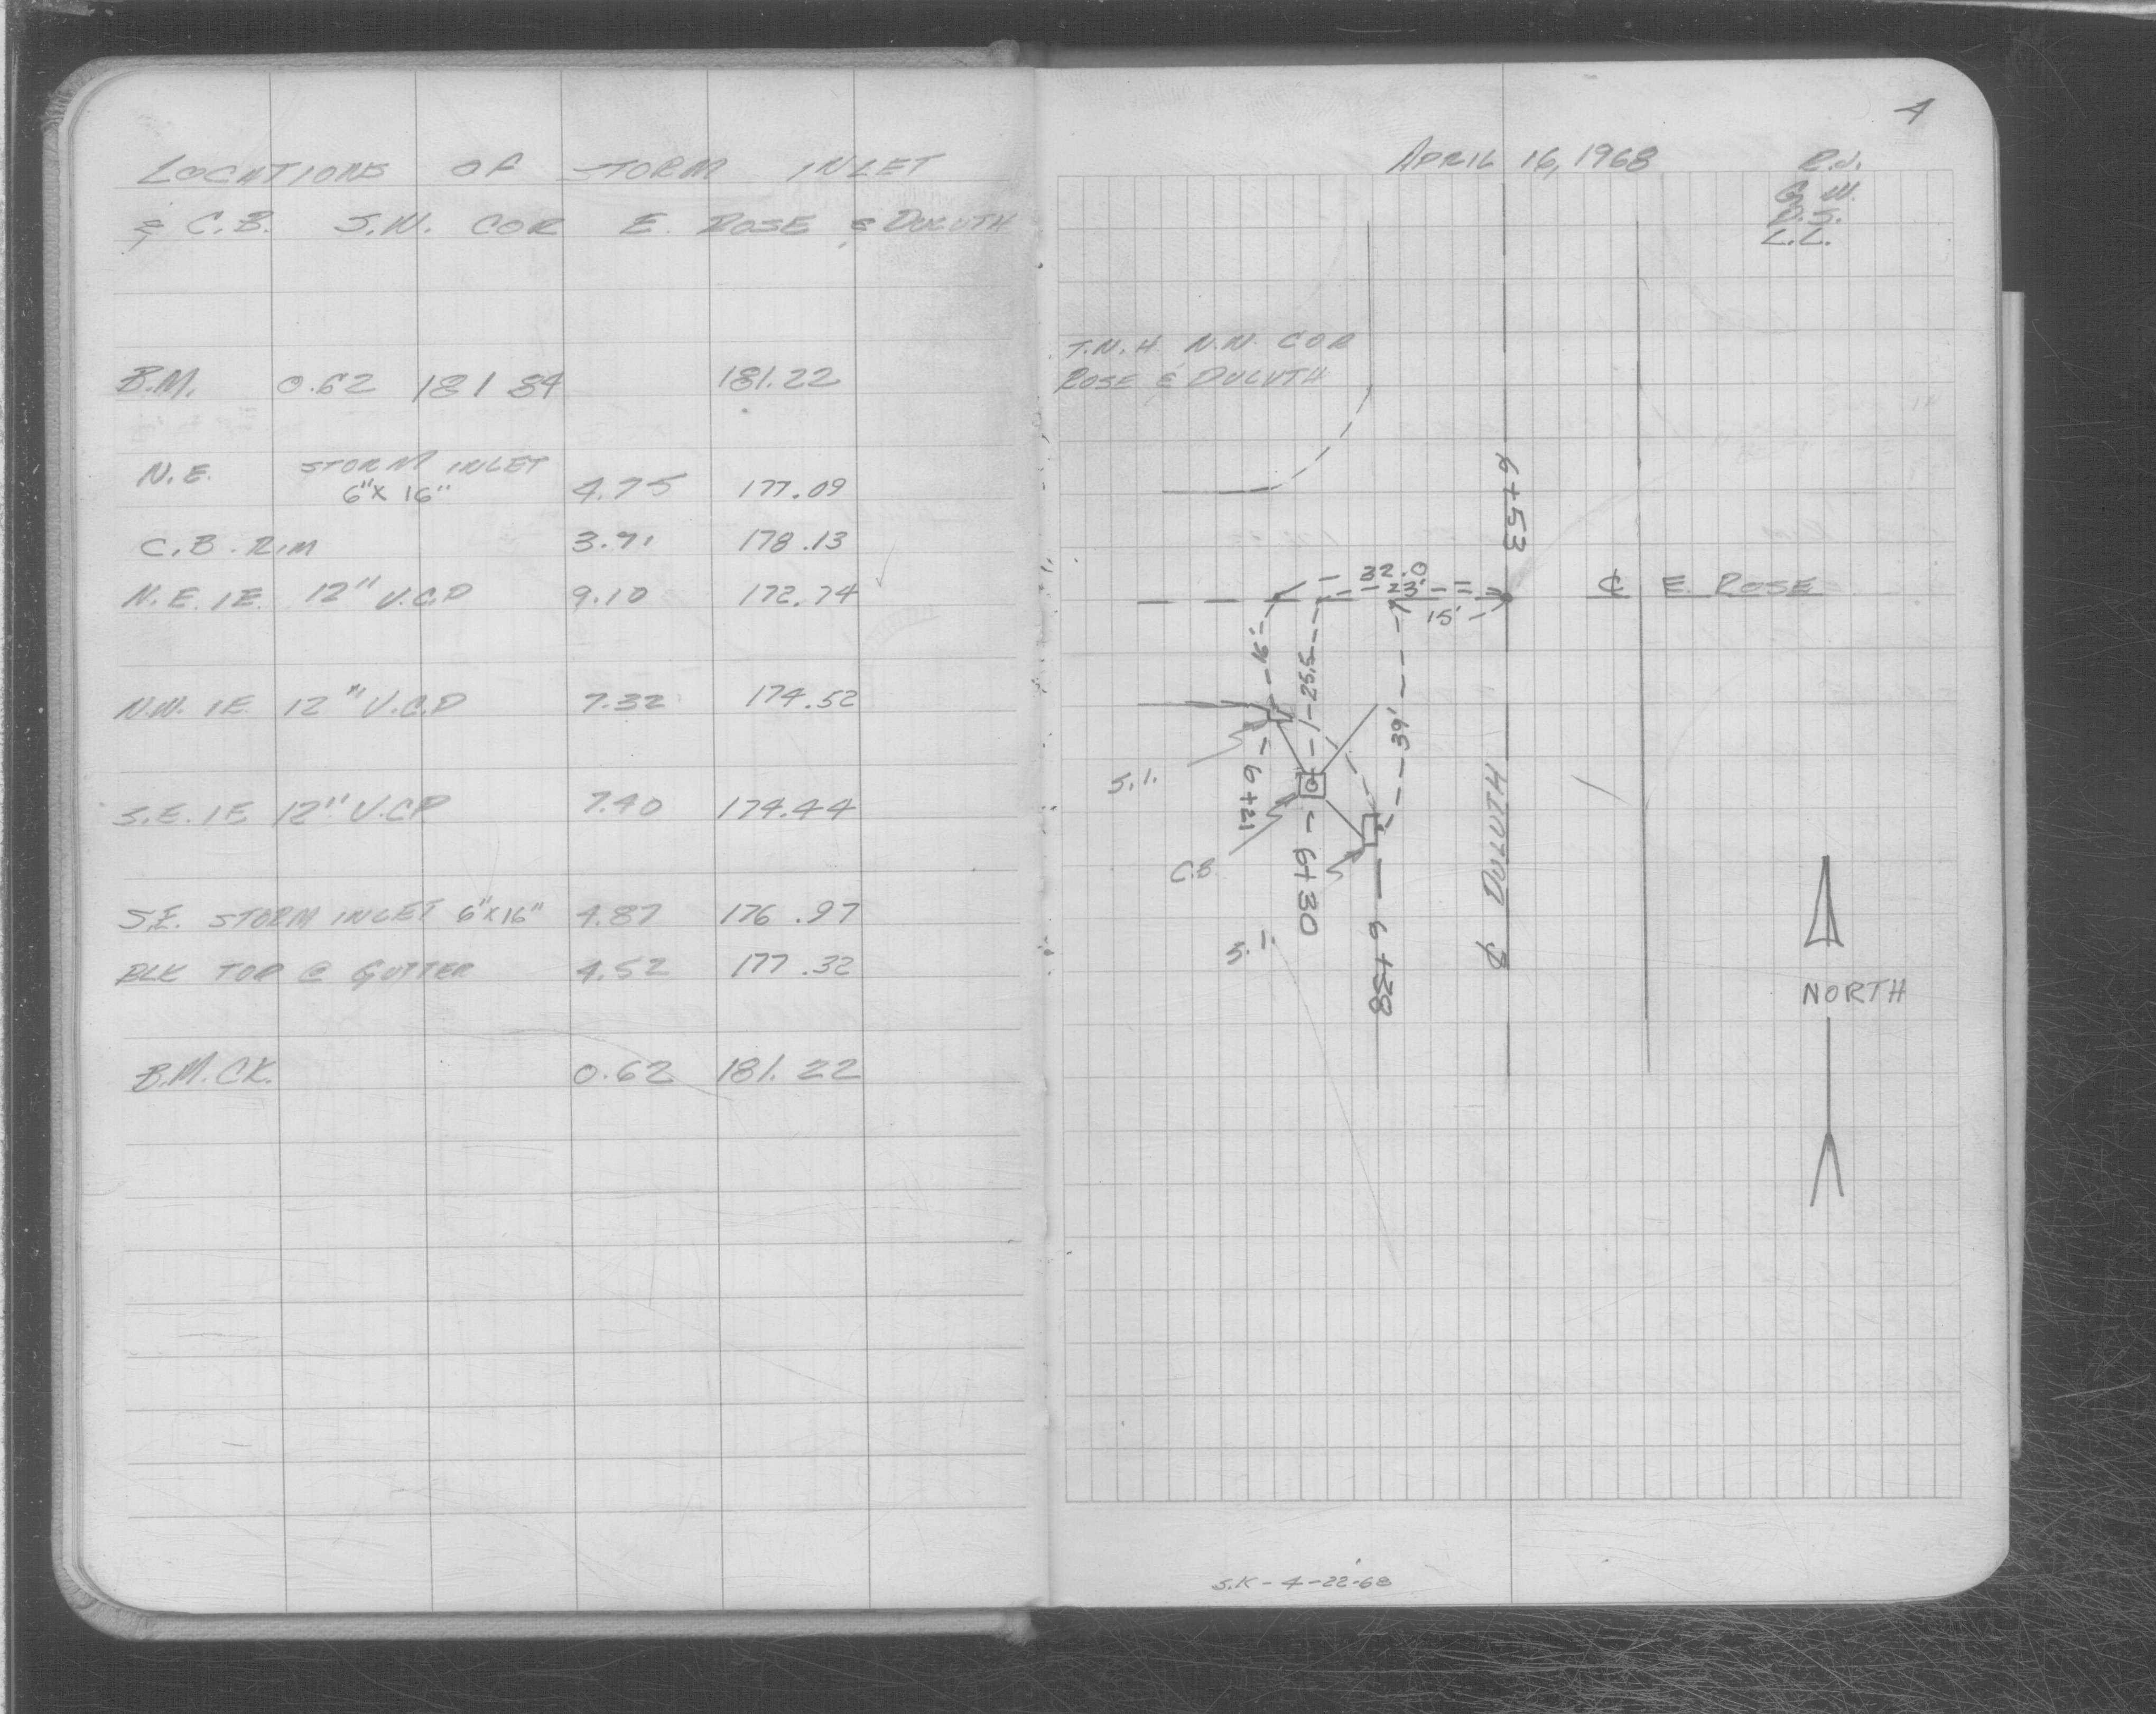 LOCATIONS OF STORM INLET
& C.B. S.W. COR E. ROSE & DULUTH
B.M. 0.62 181 84 181.22
N.E. STORM INLET 4.75 177.09
6"x 16"
C.B. RIM 3.71 178.13
N.E. IE. 12" V.C.P 9.10 172.74
N.W. IE 12" V.C.P 7.32 174.52
S.E. IE 12" V.CP 7.40 174.44
S.E. STORM INLET 6"x16" 4.87 176.97
BLK TOP @ GUTTER 4.52 177.32
B.M. CK. 0.62 181.22
4
APRIL 16, 1968
R.J.
G.W.
D.S.
L.L.
T.N.H N.W. COR
ROSE & DULUTH
6+53
32.0
23'
15'
℄ E. ROSE
16'
25.5
39'
S.I.
6+21
C.B.
6+30
S.I
6+38
℄ DULUTH
NORTH
S.K - 4-22-68